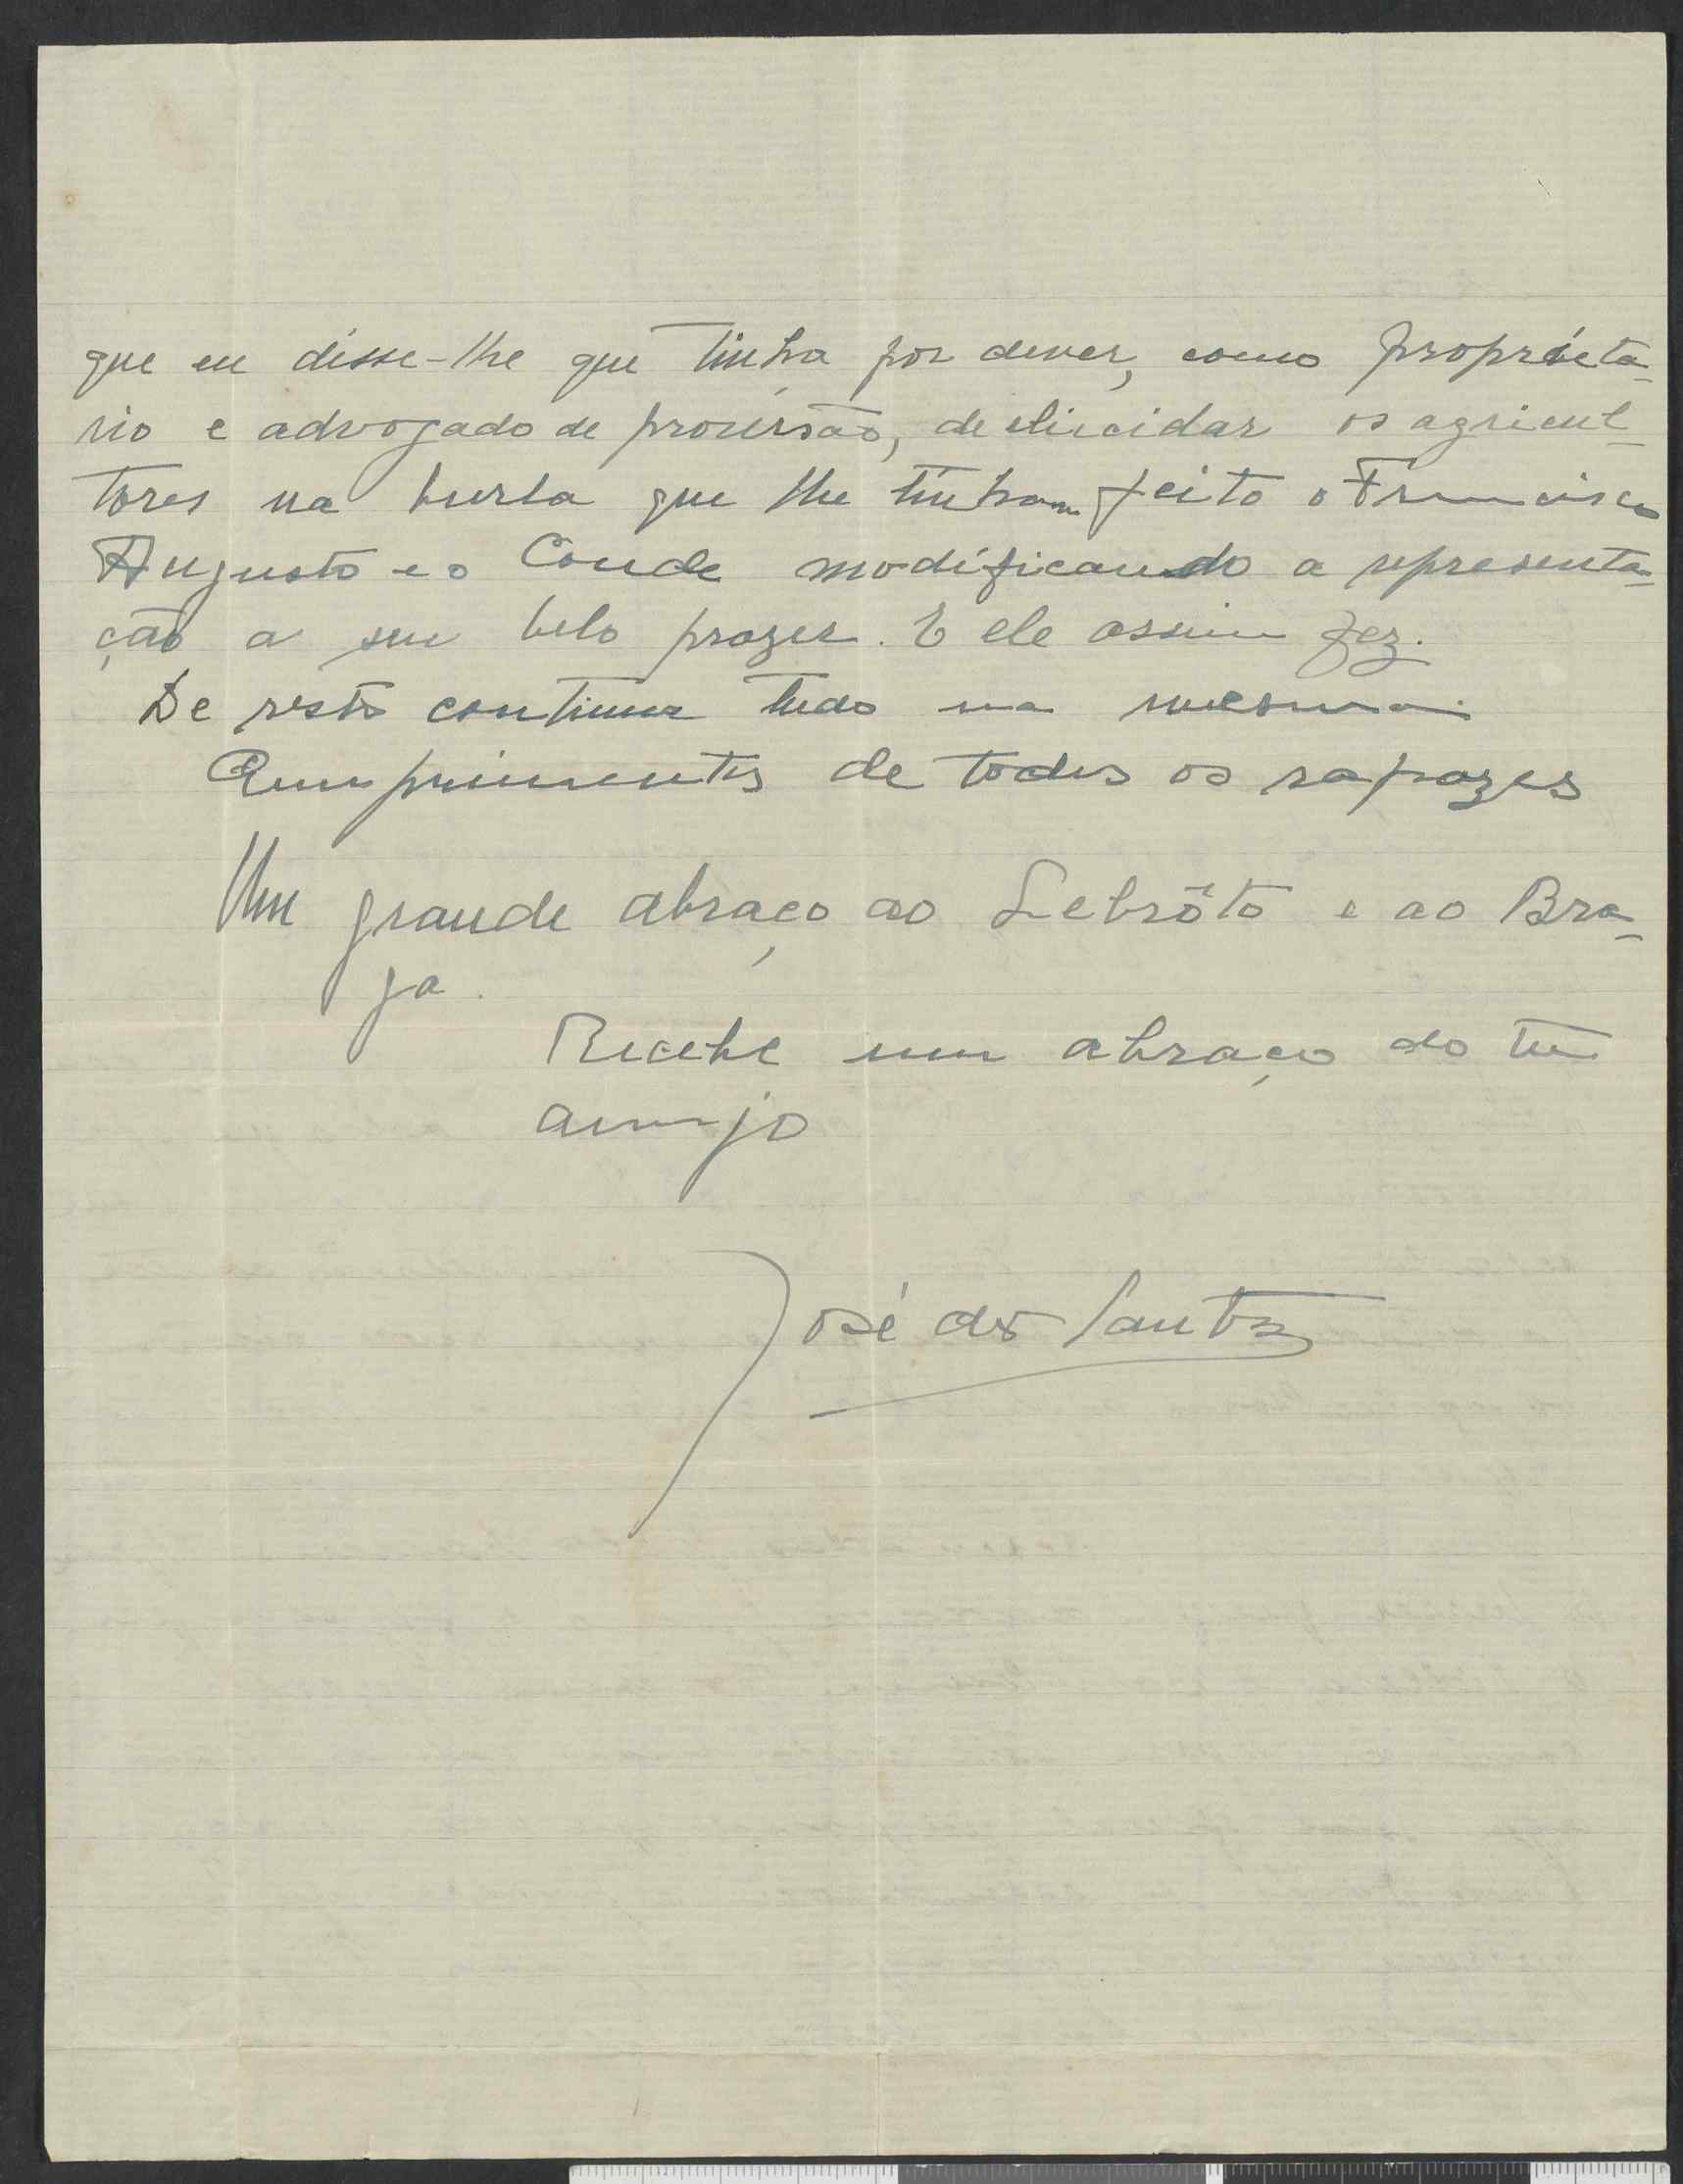 que eu disse-lhe que tinha por dever, como proprieta-
rio e advogado de provisão, de elucidar os agricul-
tores na burla que lhe tinham feito o Francisco
Augusto e o Conde modificando a representa-
ção a seu belo prazer. E ele assim fez.
De resto continua tudo na mesma.
Cumprimentos de todos os rapazes
Um grande abraço ao Lebrôto e ao Bra-
ga.
Recebe um abraço do teu
amigo
José dos Santos